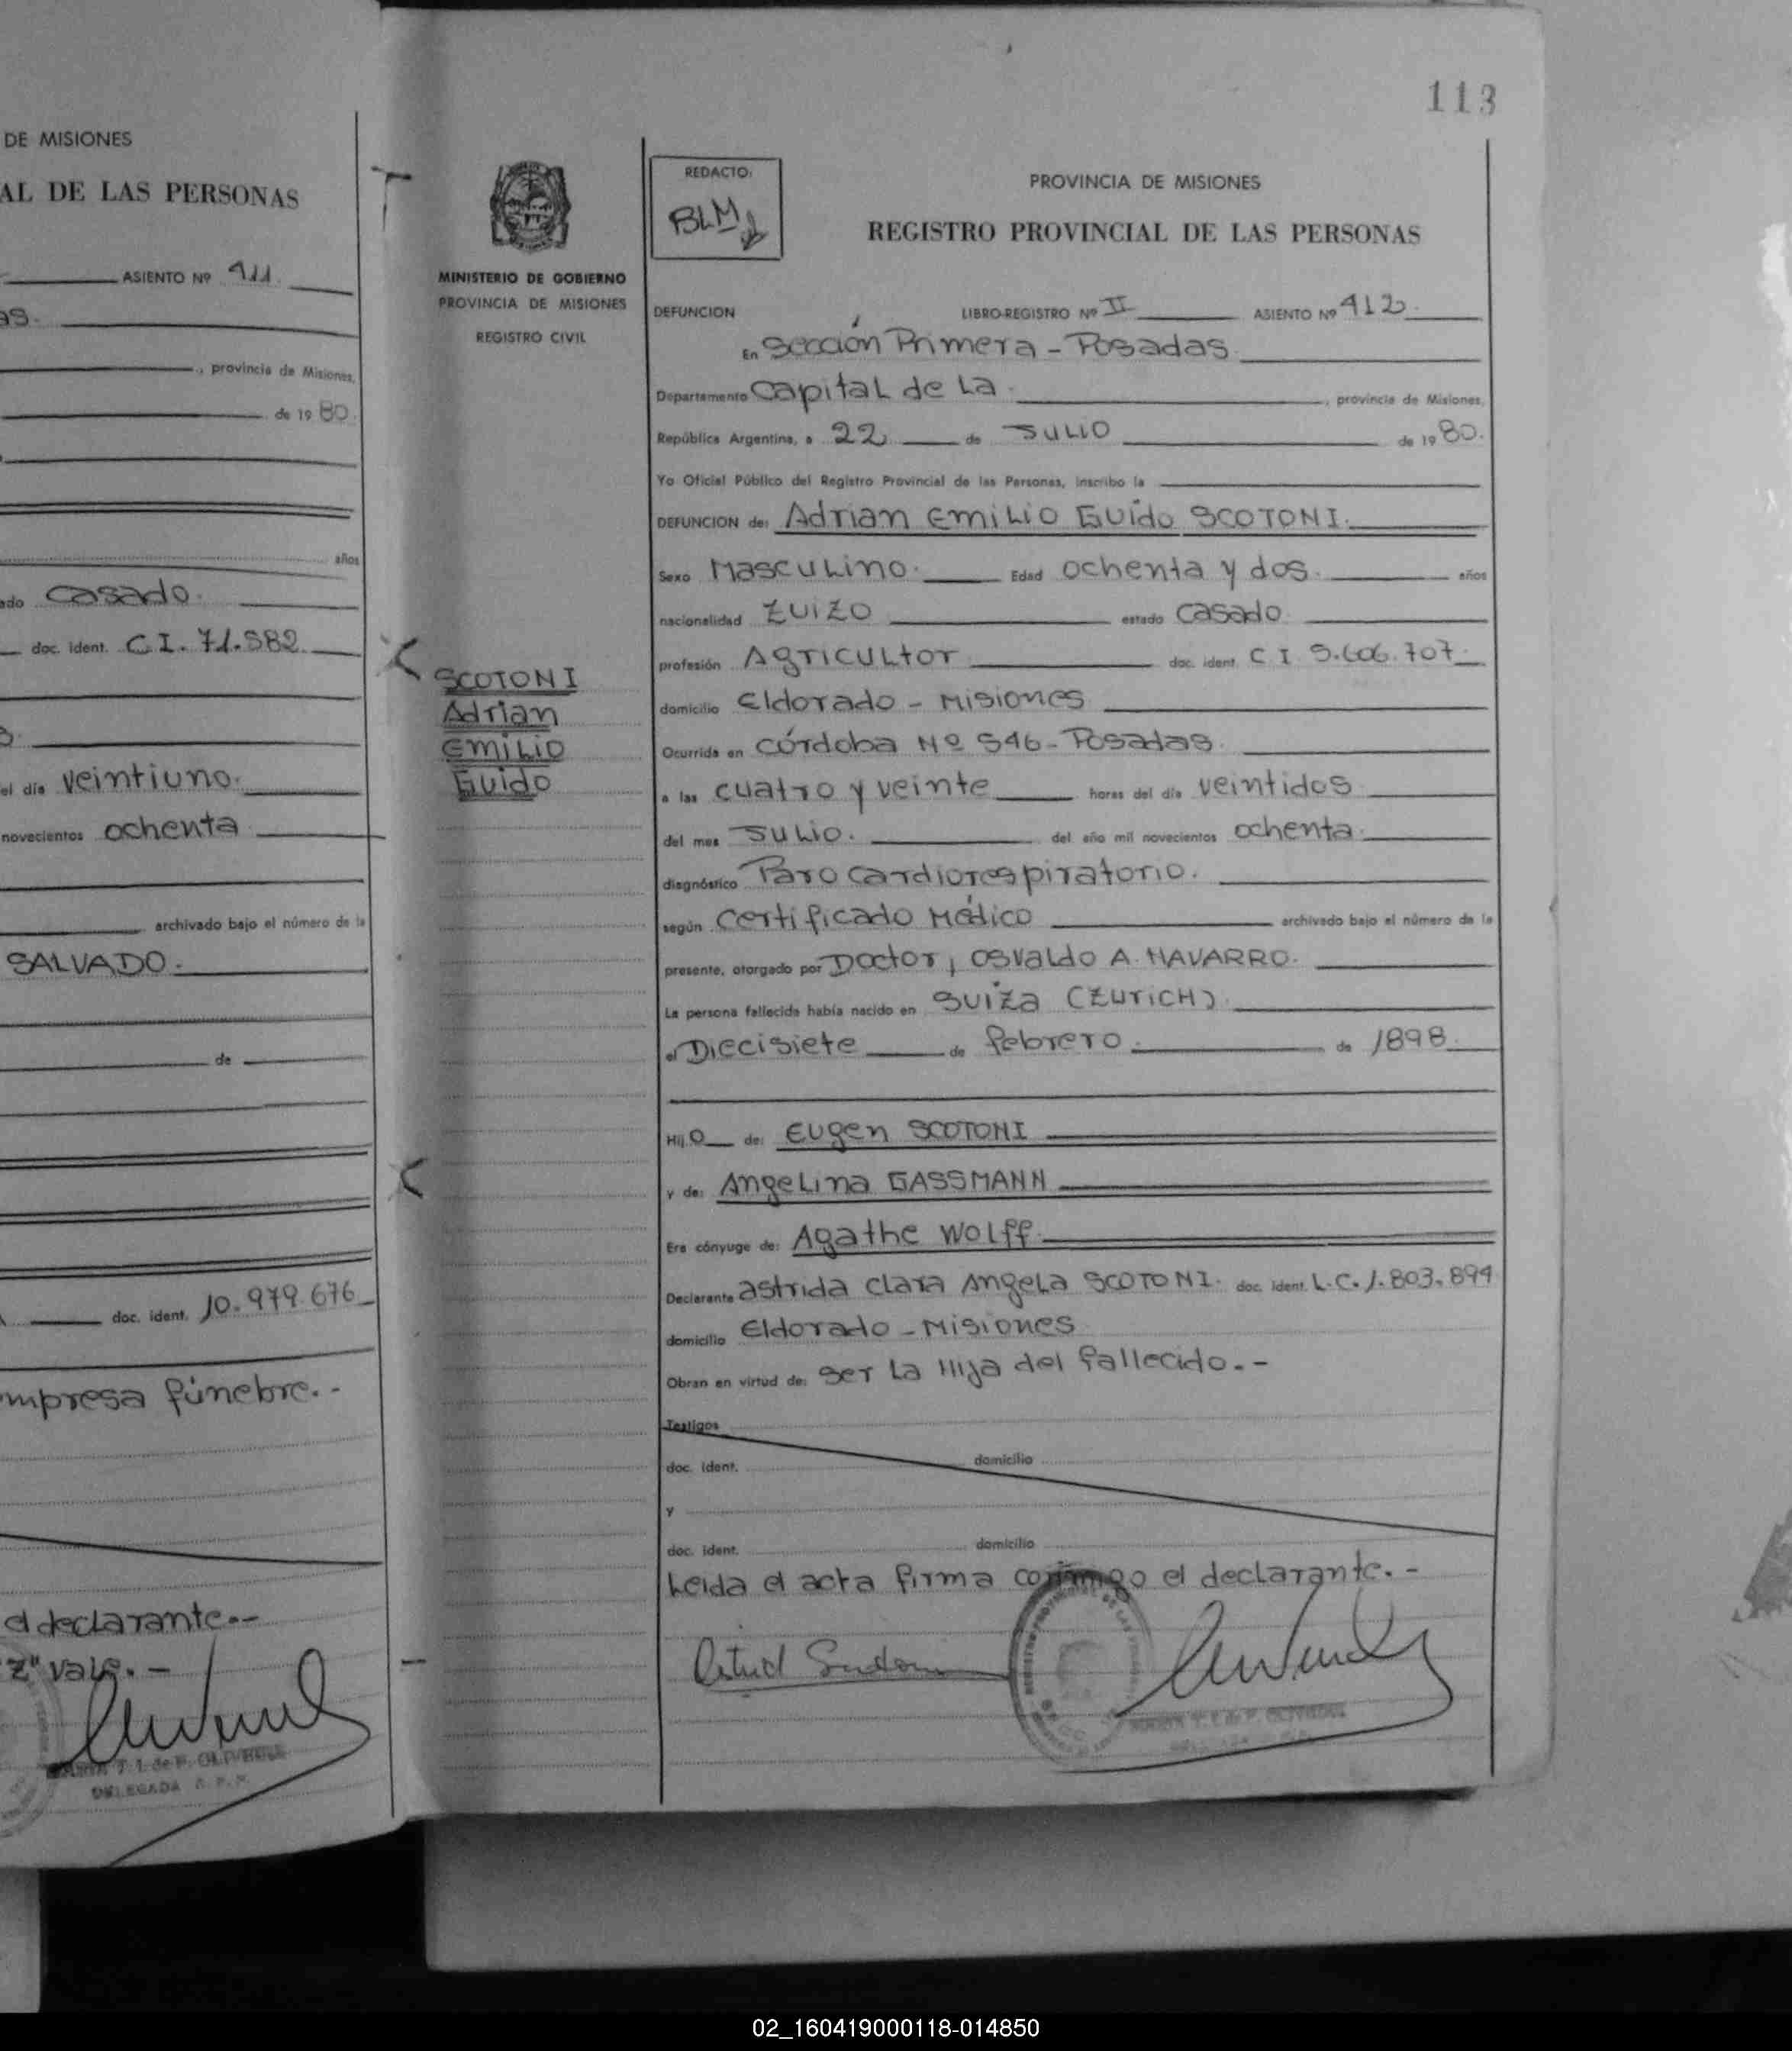 DE MISIONES
AL DE LAS PERSONAS
ASIENTO Nº 411
as.
, provincia de Misiones,
de 19 80.
años
ado casado.
doc. ident. C.I. 71.582
el día veintiuno.
novecientos ochenta
archivado bajo el número de la
SALVADO.
de
doc. ident. 10.979.676
mpresa fúnebre.-
el declarante.--
"Z" vale.-
T. I. de P. OLIVEIRA
DELEGADA R. P. P.
113
MINISTERIO DE GOBIERNO
PROVINCIA DE MISIONES
REGISTRO CIVIL
SCOTONI
Adrian
Emilio
Guido
REDACTO:
BLM
PROVINCIA DE MISIONES
REGISTRO PROVINCIAL DE LAS PERSONAS
DEFUNCION LIBRO-REGISTRO Nº II ASIENTO Nº 412
En Sección Primera - Posadas
Departamento Capital de La , provincia de Misiones,
República Argentina, a 22 de Julio de 19 80.
Yo Oficial Público del Registro Provincial de las Personas, inscribo la
DEFUNCION de: Adrian Emilio Guido SCOTONI.
Sexo Masculino. Edad ochenta y dos. años
nacionalidad ZUIZO estado casado.
profesión Agricultor doc. ident. C I 5.606.707
domicilio Eldorado - Misiones
Ocurrida en Córdoba Nº 546 - Posadas.
a las cuatro y veinte horas del día veintidos
del mes Julio. del año mil novecientos ochenta.
diagnóstico Paro cardiorespiratorio.
según Certificado Médico archivado bajo el número de la
presente, otorgado por Doctor, Osvaldo A. NAVARRO.
La persona fallecida había nacido en Suiza (Zurich)
el Diecisiete de febrero. de 1898.
Hij o de: Eugen SCOTONI
y de: Angelina GASSMANN
Era cónyuge de: Agathe Wolff.
Declarante Astrida Clara Angela SCOTONI. doc. ident. L.C. 1.803.894
domicilio Eldorado - Misiones
Obran en virtud de: ser la Hija del fallecido.-
Testigos
doc. ident. domicilio
y
doc. ident. domicilio
Leida el acta firma conmigo el declarante.-
T. I. de P. OLIVEIRA
02_160419000118-014850